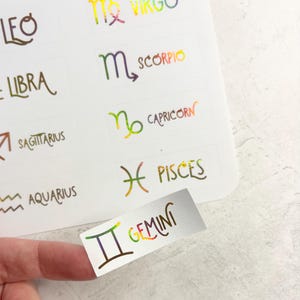 LEO
♍ VIRGO
LIBRA
♏ SCORPIO
♐ SAGITTARIUS
♑ CAPRICORN
♒ AQUARIUS
♓ PISCES
♊ GEMINI